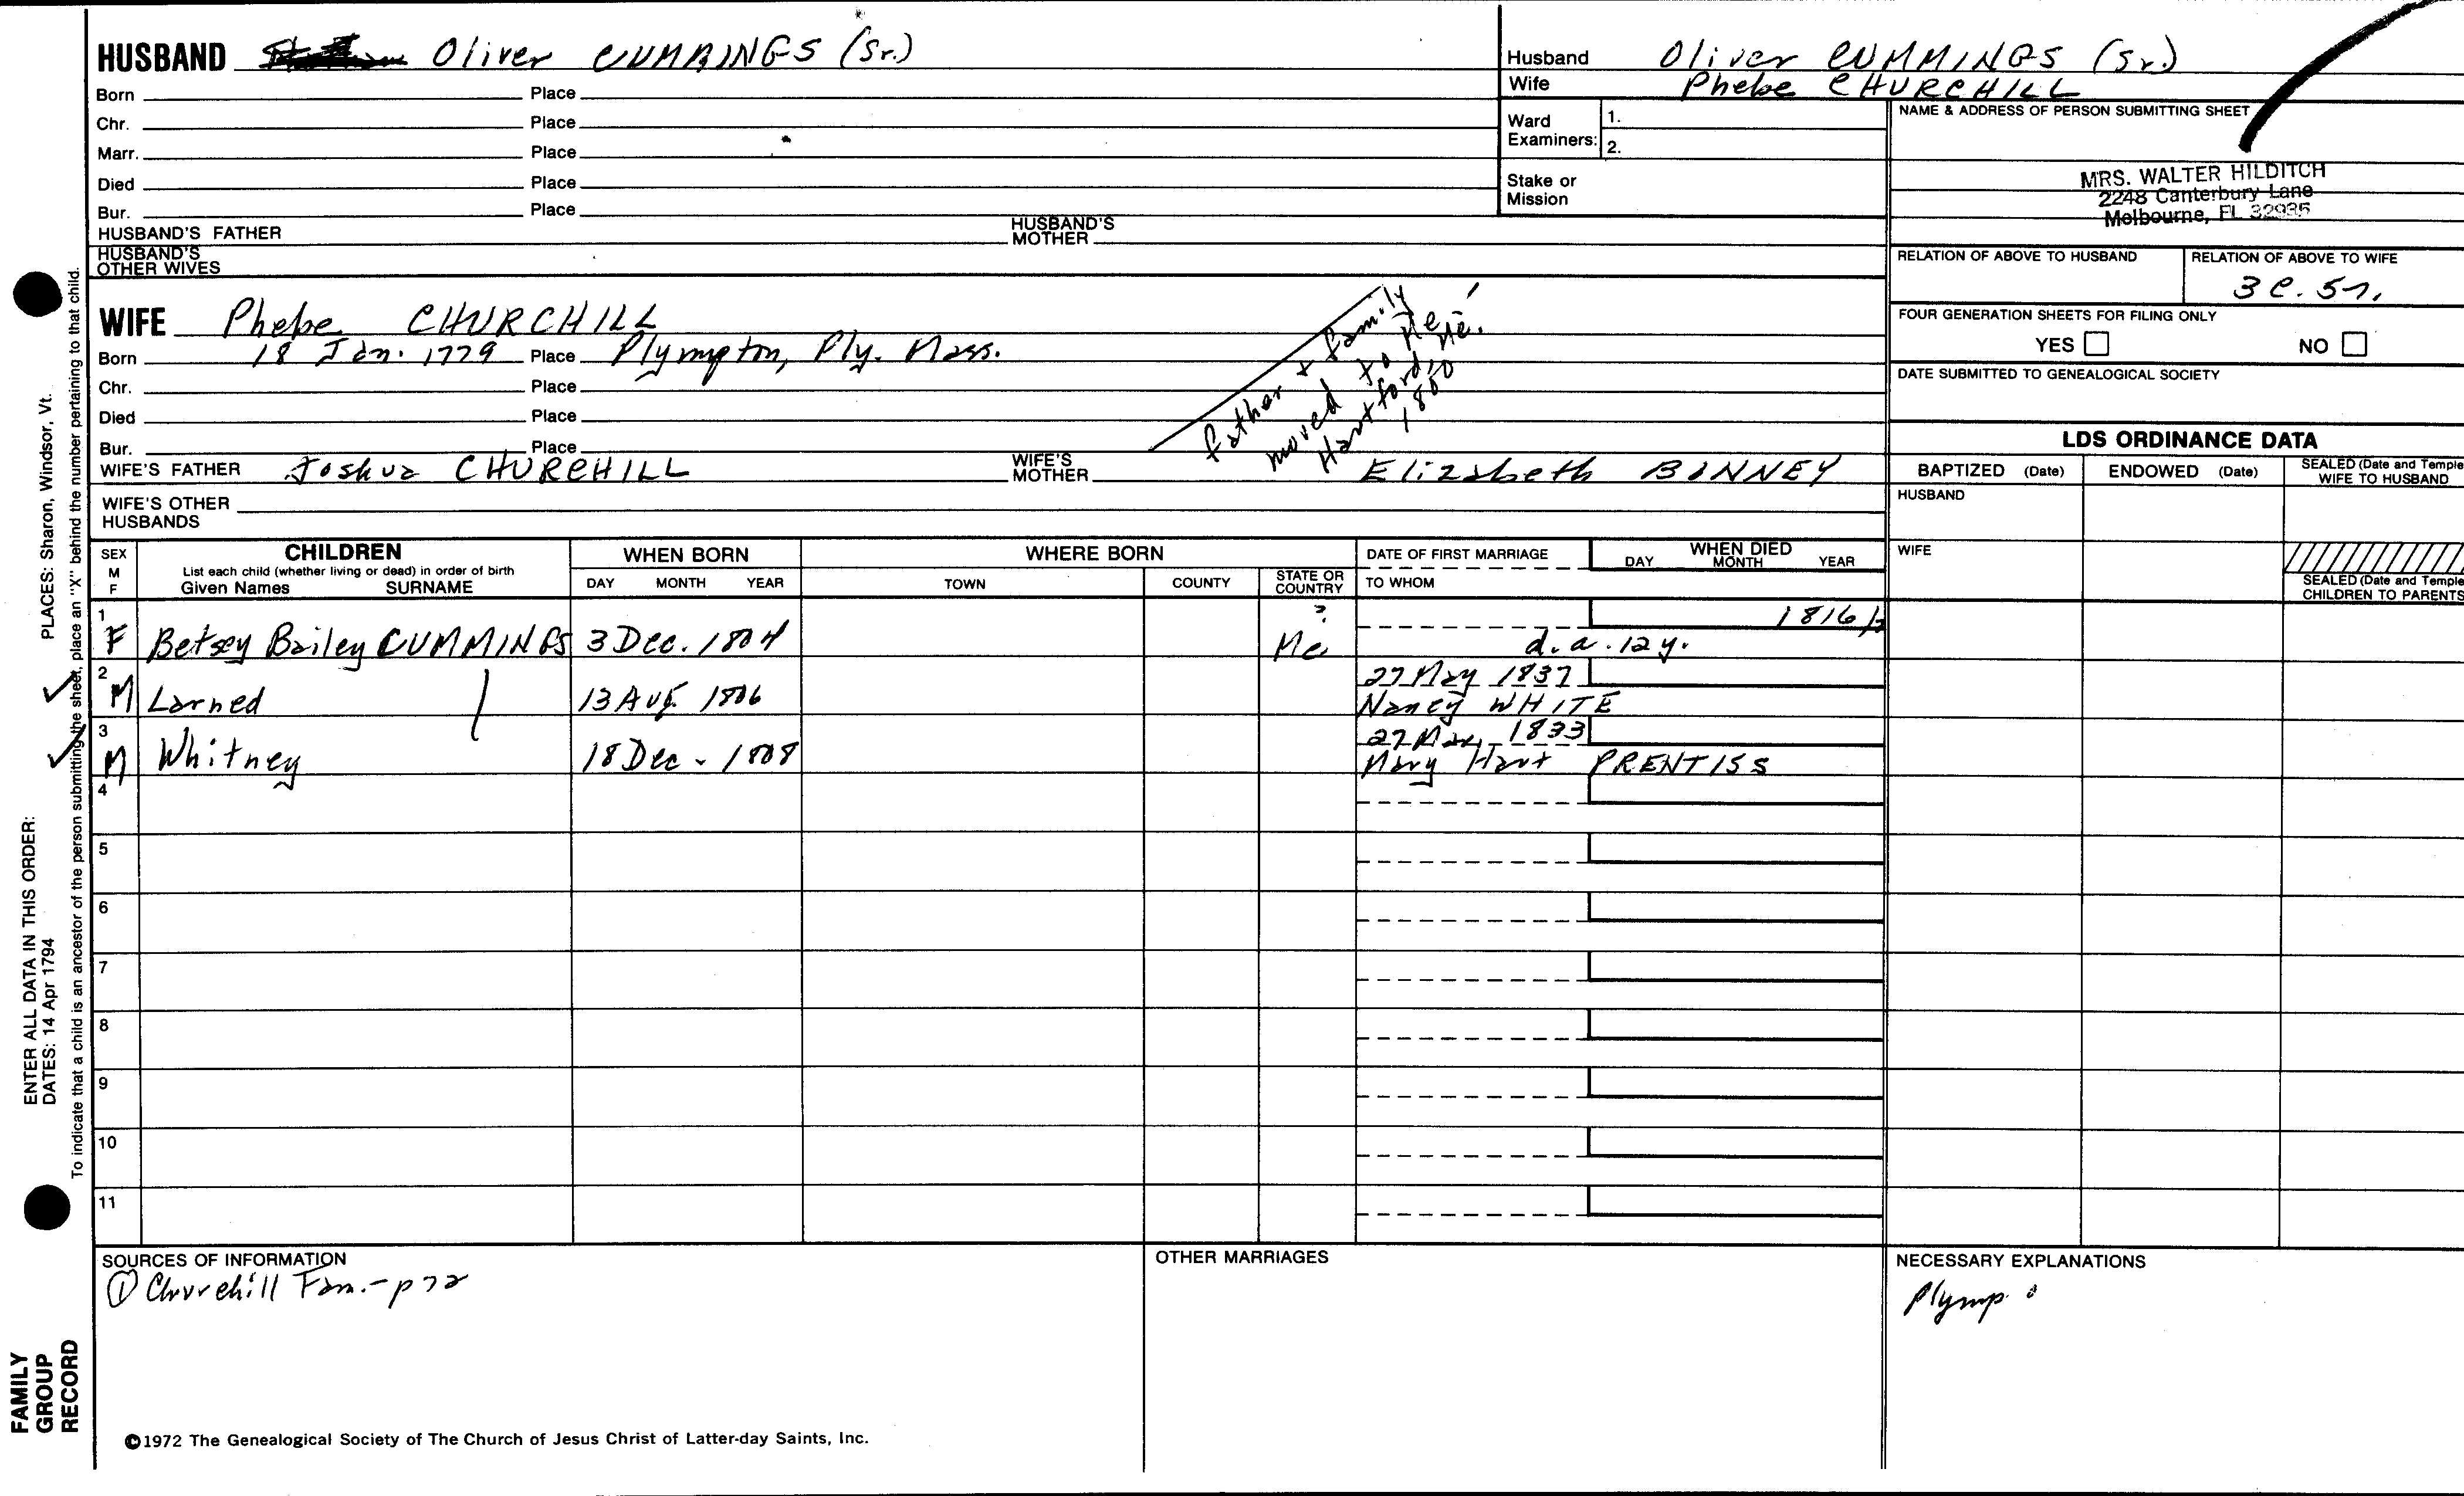 HUSBAND Oliver CUMMINGS (Sr.)
Born Place
Chr. Place
Marr. Place
Died Place
Bur. Place
HUSBAND'S FATHER HUSBAND'S MOTHER
HUSBAND'S OTHER WIVES
Husband Oliver CUMMINGS (Sr.)
Wife Phebe CHURCHILL
Ward Examiners: 1.
2.
Stake or Mission
NAME & ADDRESS OF PERSON SUBMITTING SHEET
MRS. WALTER HILDITCH
2248 Canterbury Lane
Melbourne, FL 32935
RELATION OF ABOVE TO HUSBAND
RELATION OF ABOVE TO WIFE
3 C. 5
FOUR GENERATION SHEETS FOR FILING ONLY
YES NO
DATE SUBMITTED TO GENEALOGICAL SOCIETY
WIFE Phebe CHURCHILL
Born 18 Jan. 1779 Place Plympton, Ply. Mass.
Chr. Place
Died Place
Bur. Place
father + family
moved to Me!
Hartford, Me.
in 1800
WIFE'S FATHER Joshua CHURCHILL WIFE'S MOTHER Elizabeth BINNEY
WIFE'S OTHER HUSBANDS
LDS ORDINANCE DATA
BAPTIZED (Date) ENDOWED (Date) SEALED (Date and Temple) WIFE TO HUSBAND
HUSBAND
WIFE
SEALED (Date and Temple) CHILDREN TO PARENTS
SEX M F
CHILDREN
List each child (whether living or dead) in order of birth
Given Names SURNAME
WHEN BORN
DAY MONTH YEAR
WHERE BORN
TOWN COUNTY STATE OR COUNTRY
DATE OF FIRST MARRIAGE
TO WHOM
WHEN DIED
DAY MONTH YEAR
1 ? 1816/
F Betsey Bailey CUMMINGS 3 Dec. 1804 Me d.a. 12 y.
2 27 May 1837
M Larned 13 Aug. 1806 Nancy WHITE
3 27 May 1833
M Whitney 18 Dec - 1808 Mary Hart PRENTISS
4
5
6
7
8
9
10
11
SOURCES OF INFORMATION
① Churchill Fam. - p 72
OTHER MARRIAGES
NECESSARY EXPLANATIONS
Plymp.
©1972 The Genealogical Society of The Church of Jesus Christ of Latter-day Saints, Inc.
FAMILY GROUP RECORD
ENTER ALL DATA IN THIS ORDER:
DATES: 14 Apr 1794
PLACES: Sharon, Windsor, Vt.
To indicate that a child is an ancestor of the person submitting the sheet, place an "X" behind the number pertaining to that child.